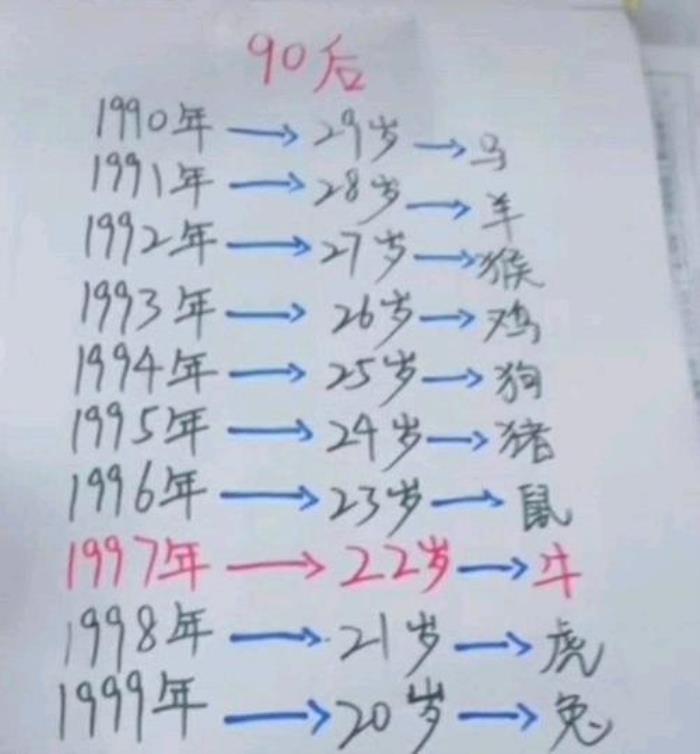 90后
1990年→29岁→马
1991年→28岁→羊
1992年→27岁→猴
1993年→26岁→鸡
1994年→25岁→狗
1995年→24岁→猪
1996年→23岁→鼠
1997年→22岁→牛
1998年→21岁→虎
1999年→20岁→兔